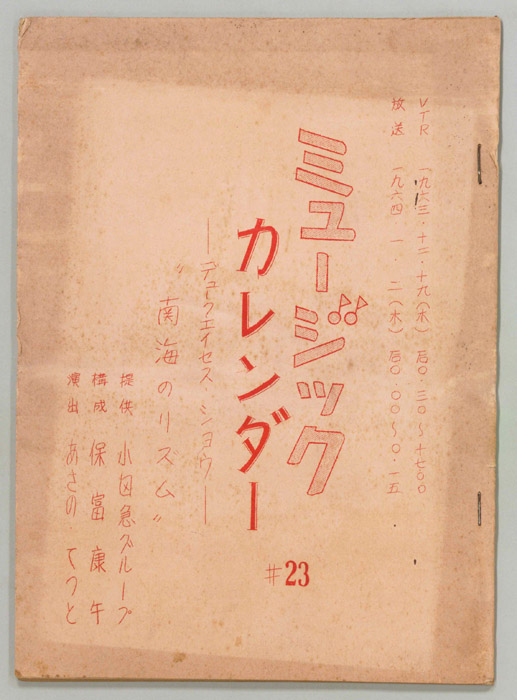 VTR 一九六三・十二・十九(木) 后0・30〜十七00
放送 一九六四・一・二(木) 后0・00〜0・一五
ミュージック
カレンダー
#23
―デュークエイセス ショウ―
"南海のリズム"
提供 小田急グループ
構成 保富康午
演出 あさの てつと